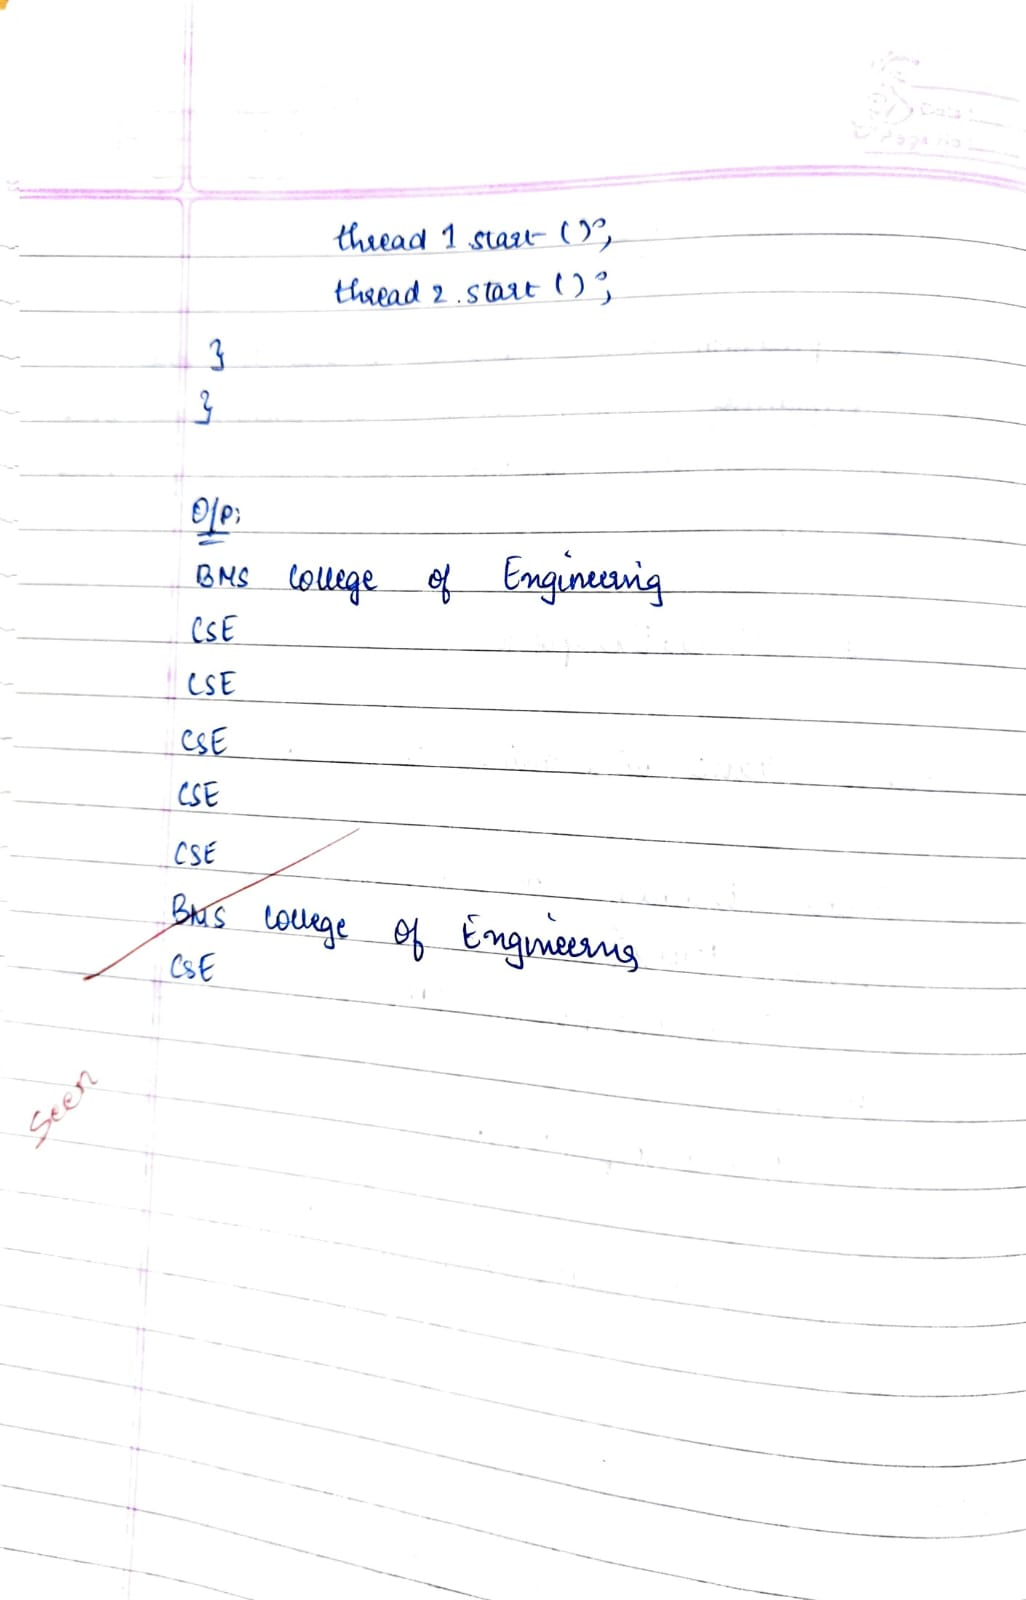 Date:
Page No:
thread 1 start ();
thread 2 . start ();
}
}
O/P:
BMS College of Engineering
CSE
CSE
CSE
CSE
CSE
BMS College of Engineering
CSE
Seen